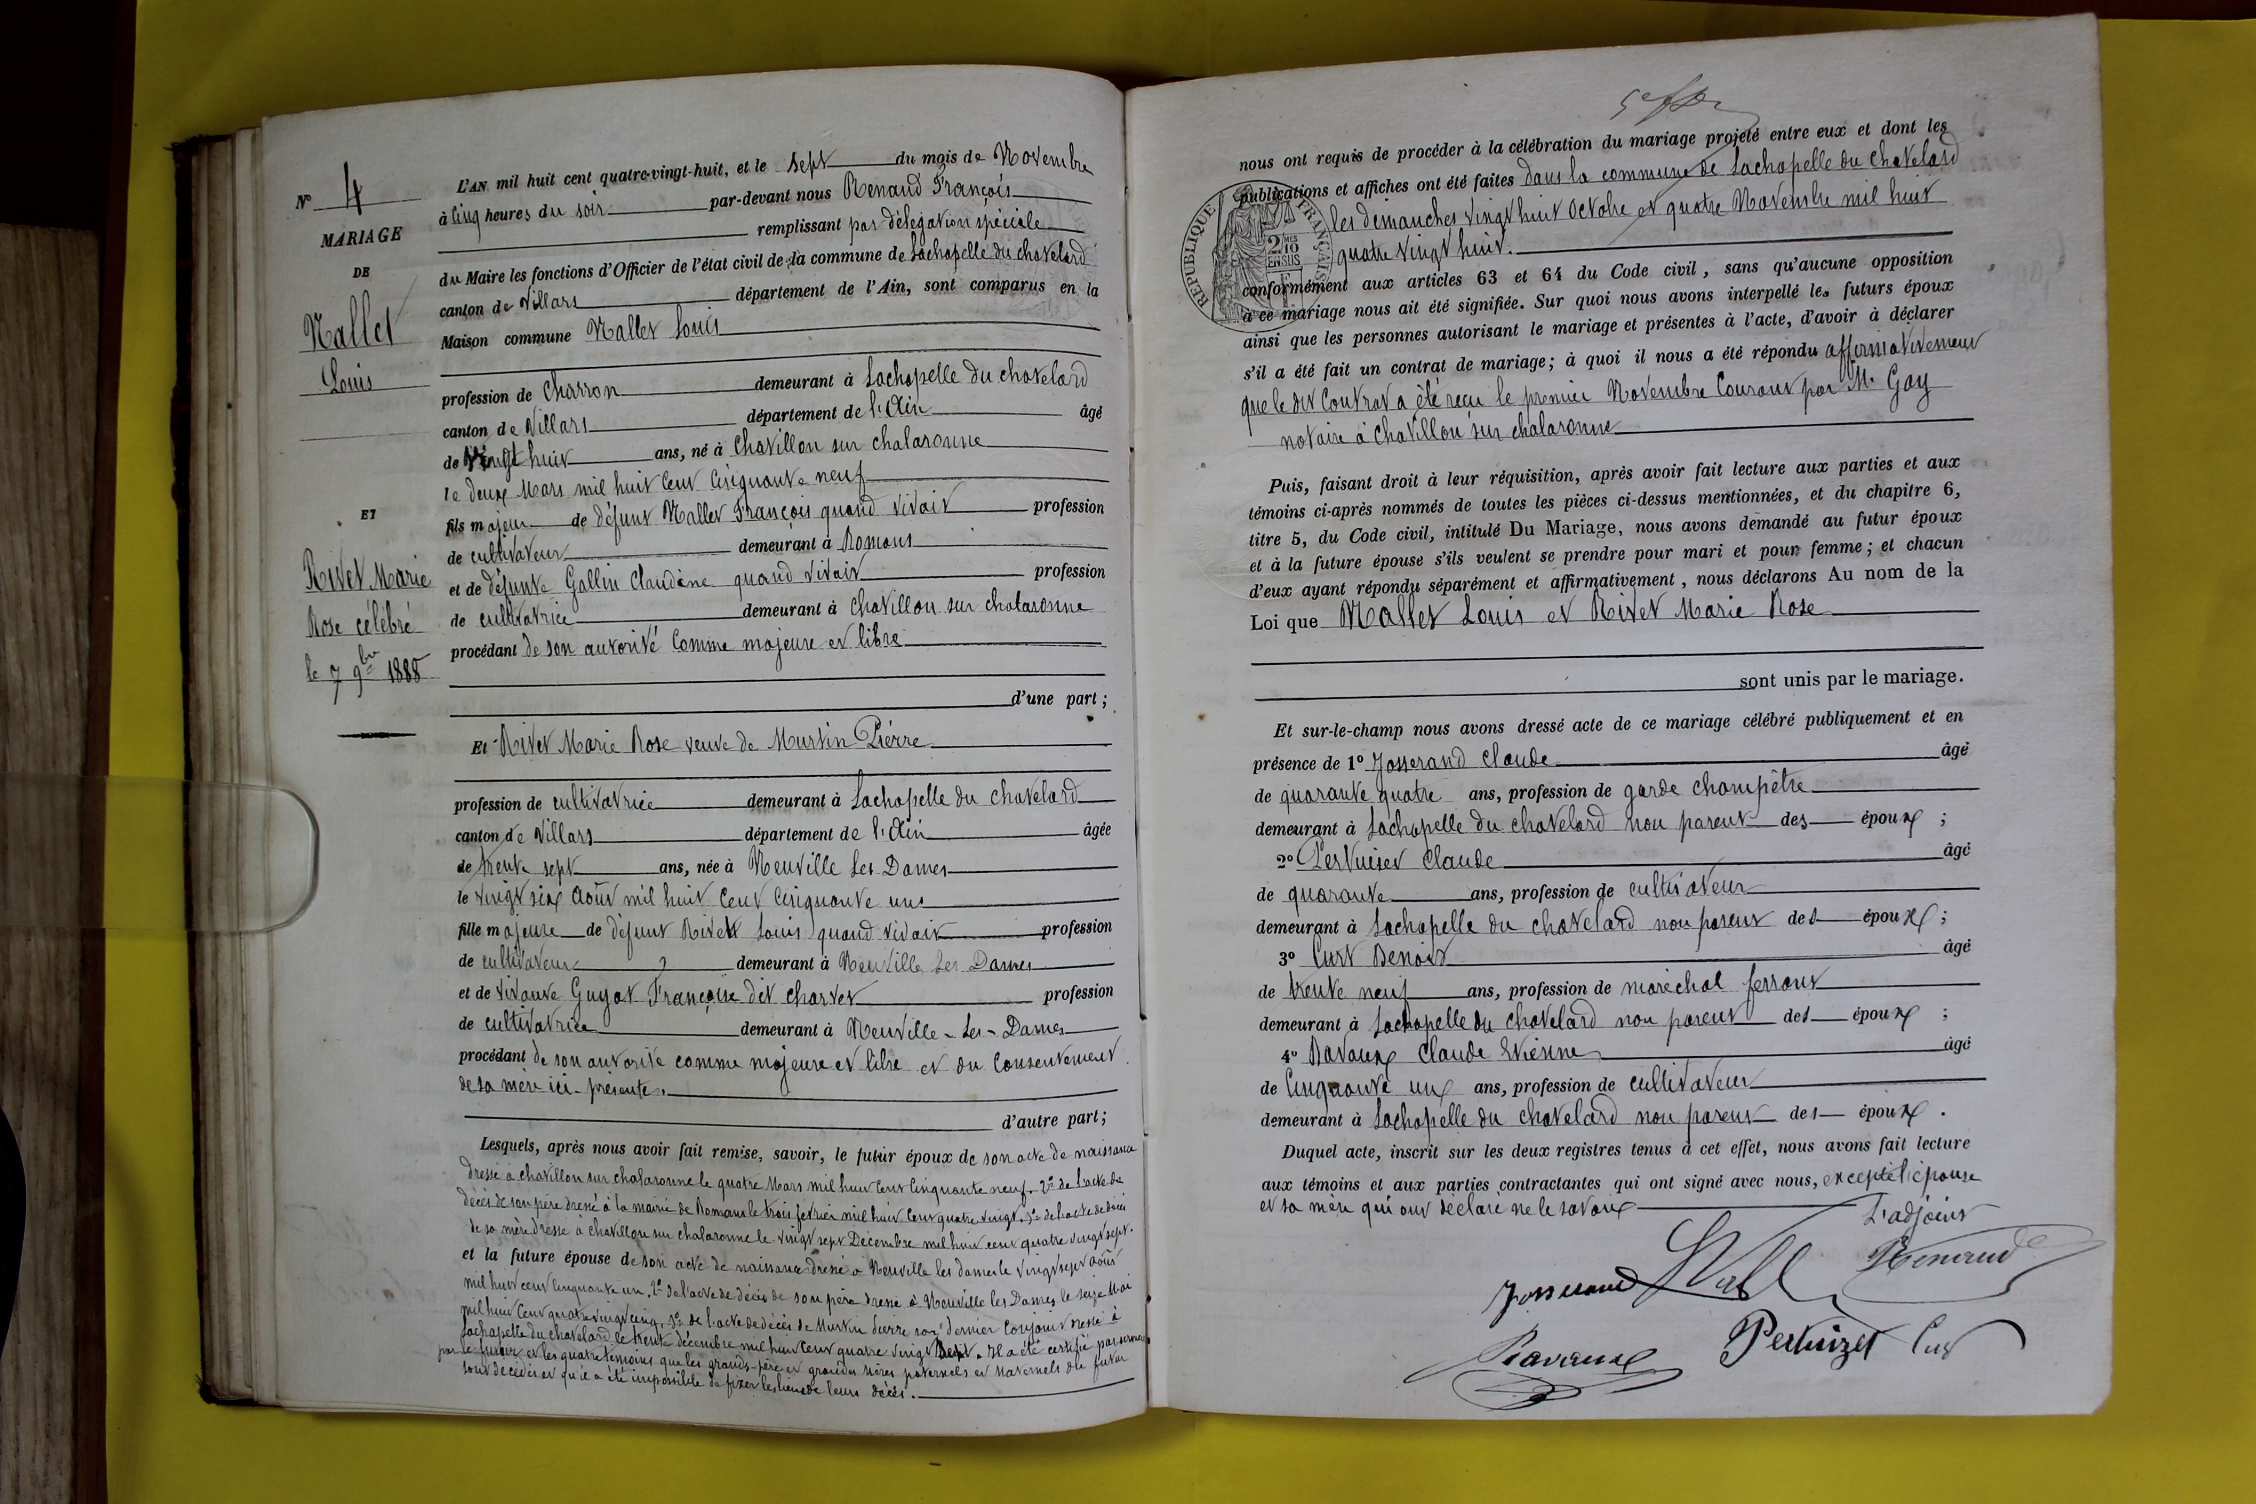 N° 4
MARIAGE
DE
Nallet
Louis
ET
Rivet Marie
Rose célébré
le 7 9bre 1888
L'AN mil huit cent quatre-vingt-huit, et le sept du mois de Novembre
à cinq heures du soir par-devant nous Renaud François
remplissant par délégation spéciale
du Maire les fonctions d'Officier de l'état civil de la commune de Lachapelle du chatelard
canton de Villars département de l'Ain, sont comparus en la
Maison commune Nallet Louis
profession de charron demeurant à Lachapelle du chatelard
canton de Villars département de l'Ain âgé
de vingt huit ans, né à Chatillon sur chalaronne
le deux Mars mil huit cent cinquante neuf
fils majeur de défunt Nallet François quand vivait profession
de cultivateur demeurant à Romans
et de défunte Gallin Claudine quand vivait profession
de cultivatrice demeurant à Chatillon sur chalaronne
procédant de son autorité comme majeure et libre
d'une part ;
Et Rivet Marie Rose veuve de Murtin Pierre
profession de cultivatrice demeurant à Lachapelle du chatelard
canton de Villars département de l'Ain âgée
de trente sept ans, née à Neuville Les Dames
le vingt six août mil huit cent cinquante un
fille majeure de défunt Rivet Louis quand vivait profession
de cultivateur demeurant à Neuville Les Dames
et de vivante Guyot Françoise dit Charvet profession
de cultivatrice demeurant à Neuville-Les-Dames
procédant de son autorité comme majeure et libre et du consentement
de sa mère ici présente.
d'autre part ;
Lesquels, après nous avoir fait remise, savoir, le futur époux de son acte de naissance
dressé à chatillon sur chalaronne le quatre Mars mil huit cent cinquante neuf. 2° de l'acte de
décès de son père dressé à la mairie de Romans le trois février mil huit cent quatre vingt. 3° de l'acte de décès
de sa mère dressé à chatillon sur chalaronne le vingt sept Décembre mil huit cent quatre vingt sept.
et la future épouse de son acte de naissance dressé à Neuville les dames le vingt sept août
mil huit cent cinquante un. 2° de l'acte de décès de son père dressé à Neuville les Dames le seize Mai
mil huit cent quatre vingt cinq. 3° de l'acte de décès de Murtin Pierre son dernier conjoint dressé à
Lachapelle du chatelard le trente décembre mil huit cent quatre vingt sept. Il a été certifié par serment
par le futur et les quatre témoins que les grands-père et grandes mères paternels et maternels du futur
sont décédés et qu'il a été impossible de fixer les lieux de leurs décès.
nous ont requis de procéder à la célébration du mariage projeté entre eux et dont les
publications et affiches ont été faites dans la commune de Lachapelle du chatelard
les dimanches vingt huit octobre et quatre Novembre mil huit
quatre vingt huit.
RÉPUBLIQUE FRANÇAISE
2/10 EN SUS
conformément aux articles 63 et 64 du Code civil, sans qu'aucune opposition
à ce mariage nous ait été signifiée. Sur quoi nous avons interpellé les futurs époux
ainsi que les personnes autorisant le mariage et présentes à l'acte, d'avoir à déclarer
s'il a été fait un contrat de mariage ; à quoi il nous a été répondu affirmativement
que le dit contrat a été reçu le premier Novembre courant par M. Gay
notaire à Chatillon sur chalaronne
Puis, faisant droit à leur réquisition, après avoir fait lecture aux parties et aux
témoins ci-après nommés de toutes les pièces ci-dessus mentionnées, et du chapitre 6,
titre 5, du Code civil, intitulé Du Mariage, nous avons demandé au futur époux
et à la future épouse s'ils veulent se prendre pour mari et pour femme ; et chacun
d'eux ayant répondu séparément et affirmativement, nous déclarons Au nom de la
Loi que Nallet Louis et Rivet Marie Rose
sont unis par le mariage.
Et sur-le-champ nous avons dressé acte de ce mariage célébré publiquement et en
présence de 1° Josserand Claude âgé
de quarante quatre ans, profession de garde champêtre
demeurant à Lachapelle du chatelard non parent des époux ;
2° Pertuiset Claude âgé
de quarante ans, profession de cultivateur
demeurant à Lachapelle du chatelard non parent des époux ;
3° Curt Benoit âgé
de trente neuf ans, profession de maréchal ferrant
demeurant à Lachapelle du chatelard non parent des époux ;
4° Ravaux Claude Etienne âgé
de cinquante un ans, profession de cultivateur
demeurant à Lachapelle du chatelard non parent des époux.
Duquel acte, inscrit sur les deux registres tenus à cet effet, nous avons fait lecture
aux témoins et aux parties contractantes qui ont signé avec nous, excepté l'épouse
et sa mère qui ont déclaré ne le savoir
L'adjoint
Renaud
Josserand
Ravaux Pertuizet Curt